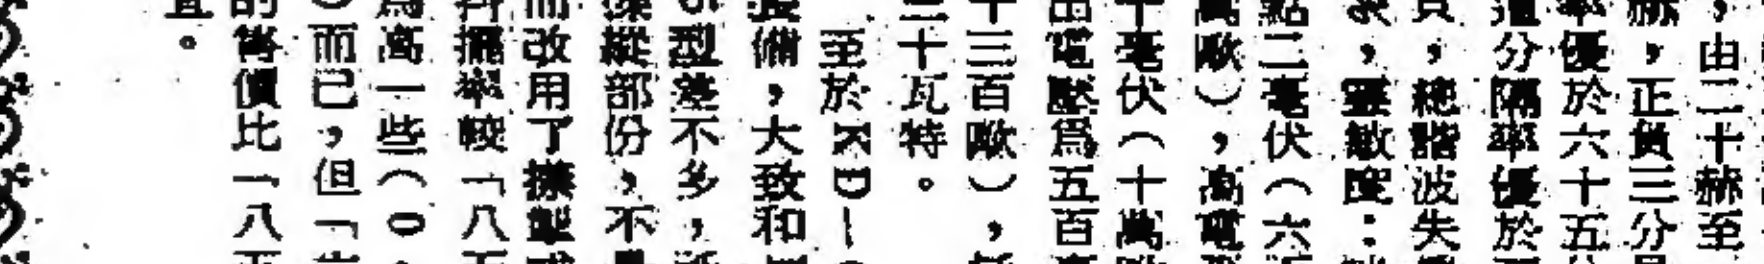 ，由二十赫至
赫，正負三分
率優於六十五
道分隔率優於
真，總諧波失
，靈敏度：
點二毫伏（六
萬歐），高電
十毫伏（十萬
出電壓為五百
十三百歐），
三十瓦特。
至於KD—
裝備，大致和
型差不多，
操縱部份，不
而改用了
抖擺率較「八五
為高一些（0．
）而已，但「
的售價比「八五
宜。